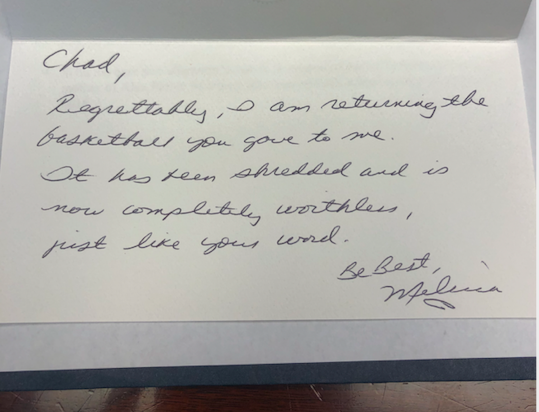 Chad,
Regrettably, I am returning the
basketball you gave to me.
It has been shredded and is
now completely worthless,
just like your word.
Be Best,
Melissa